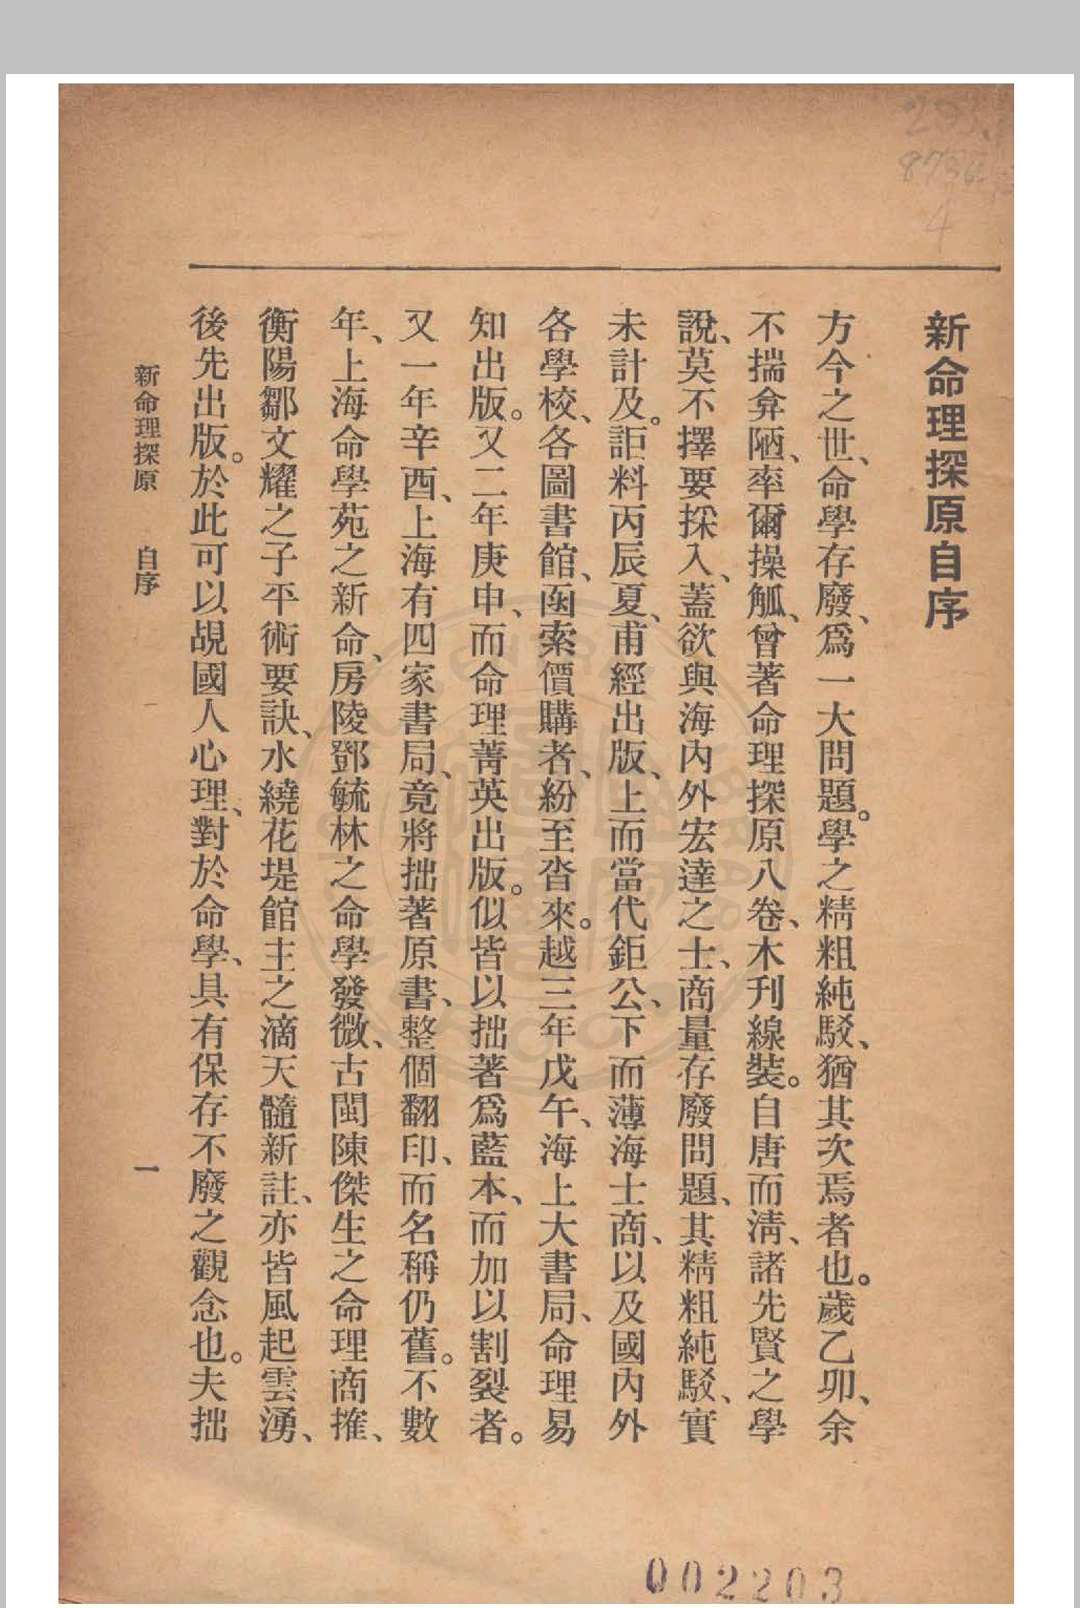 新命理探原自序
方今之世、命學存廢、爲一大問題。學之精粗純駁、猶其次焉者也。歲乙卯、余
不揣弇陋、率爾操觚、曾著命理探原八卷、木刊線裝。自唐而淸、諸先賢之學
說、莫不擇要採入、蓋欲與海內外宏達之士、商量存廢問題、其精粗純駁、實
未計及。詎料丙辰夏、甫經出版、上而當代鉅公、下而薄海士商、以及國內外
各學校、各圖書館、函索價購者、紛至沓來。越三年戊午、海上大書局、命理易
知出版。又二年庚申、而命理菁英出版。似皆以拙著爲藍本、而加以割裂者。
又一年辛酉、上海有四家書局、竟將拙著原書、整個翻印、而名稱仍舊。不數
年、上海命學苑之新命、房陵鄧毓林之命學發微、古閩陳傑生之命理商搉、
衡陽鄒文耀之子平術要訣、水繞花堤館主之滴天髓新註、亦皆風起雲湧、
後先出版。於此可以覘國人心理、對於命學、具有保存不廢之觀念也。夫拙
新命理探原　自序
一
002203